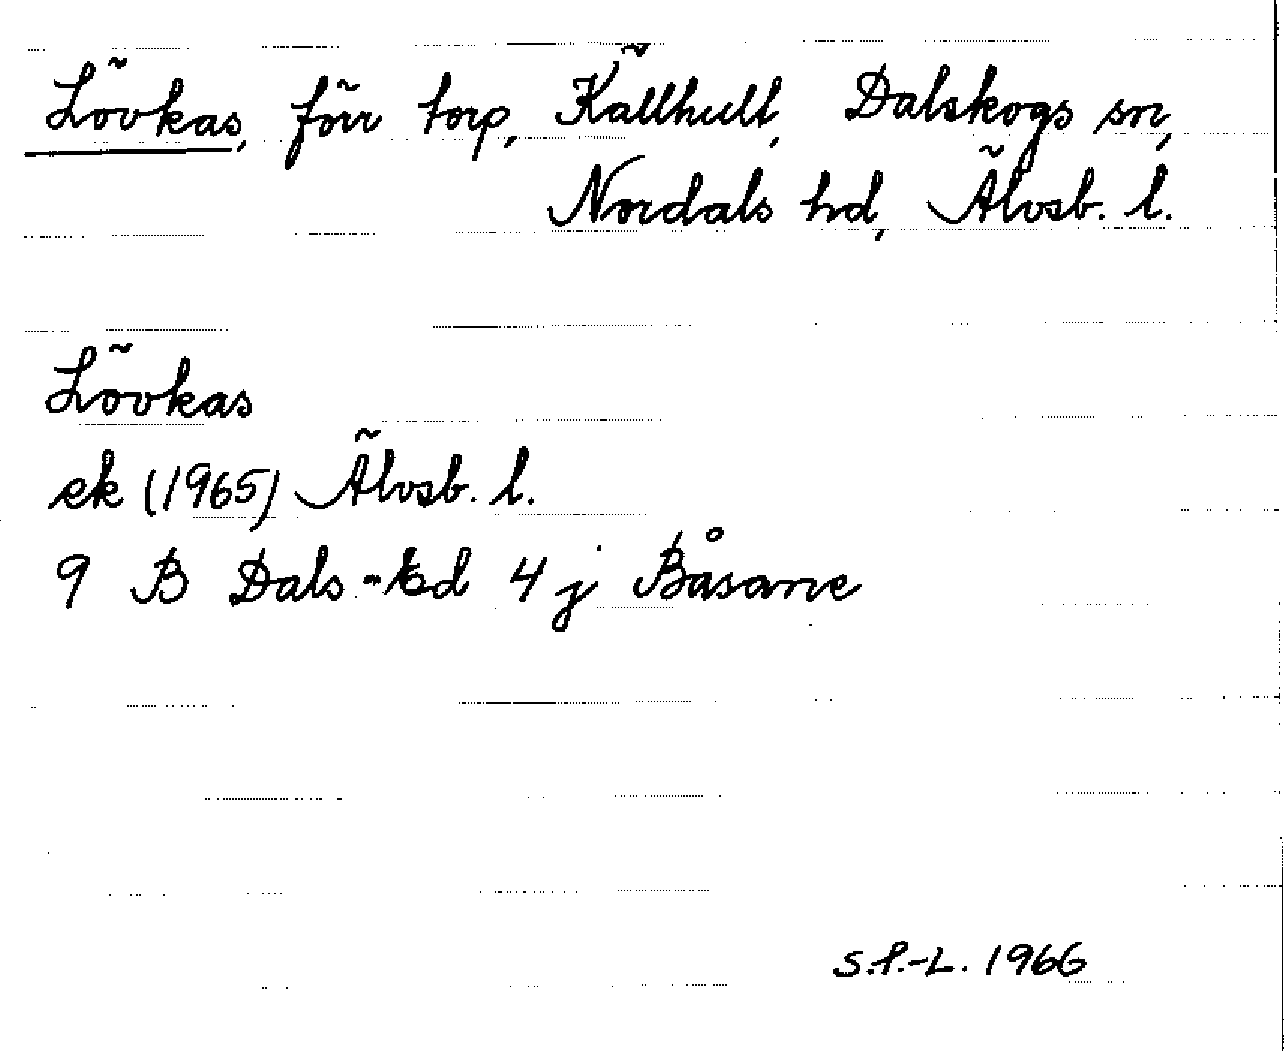 Lövkas, förr torp, Källhult, Dalskogs sn,
Nordals hd, Älvsb. l.
Lövkas
ek (1965) Älvsb. l.
9 B Dals-Ed 4 j Båsane
S.P.-L. 1966